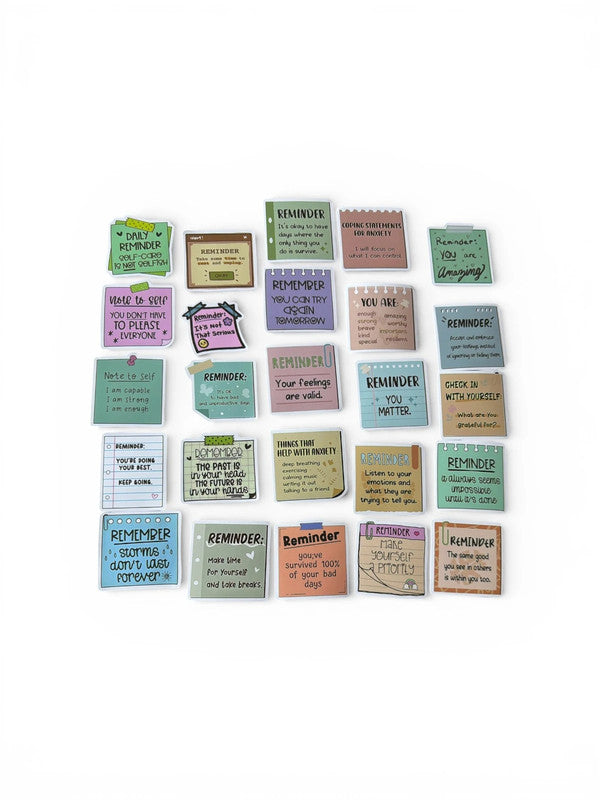 DAILY
REMINDER
SELF-CARE
IS NOT SELFISH
REMINDER
Take some time to
rest and
OKAY
REMINDER
It's okay to have
days where the
only thing you
do is survive.
COPING STATEMENTS
FOR ANXIETY
I will focus on
what I can control
Reminder:
you are
Amazing!
Note to Self
YOU DON'T HAVE
TO PLEASE
EVERYONE
Reminder:
It's Not
That Serious
REMEMBER
YOU CAN TRY
AGAIN
TOMORROW
YOU ARE:
enough amazing
strong worthy
brave important
kind resilient
special
REMINDER:
Accept and embrace
your feelings instead
of ignoring or hiding them.
Note to Self
I am capable
I am strong
I am enough
REMINDER:
It's ok
to have bad
and unproductive days
REMINDER
Your feelings
are valid.
REMINDER
YOU
MATTER.
CHECK IN
WITH YOURSELF:
What are you
grateful for?
REMINDER:
YOU'RE DOING
YOUR BEST.
KEEP GOING.
REMEMBER
THE PAST IS
IN YOUR HEAD
THE FUTURE IS
IN YOUR HANDS
THINGS THAT
HELP WITH ANXIETY
deep breathing
exercising
calming music
writing it out
talking to a friend
REMINDER
Listen to your
emotions and
what they are
trying to tell you.
REMINDER
it always seems
impossible
until it's done
REMEMBER
storms
don't last
forever
REMINDER:
Make time
for yourself
and take breaks.
Reminder
you've
survived 100%
of your bad
days
REMINDER
Make
yourself
a priority
REMINDER
The same good
you see in others
is within you too.